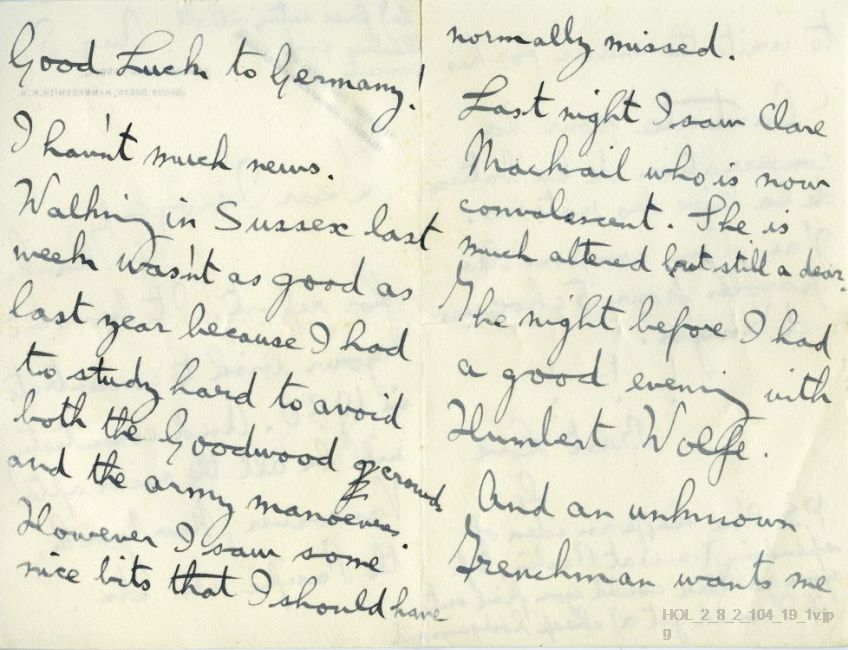 Good Luck to Germany!
I havn't much news.
Walking in Sussex last
week wasn't as good as
last year because I had
to study hard to avoid
both the Goodwood crowds
and the army manoevres.
However I saw some
nice bits that I should have
normally missed.
Last night I saw Clare
Mackail who is now
convalescent. She is
much altered but still a dear.
The night before I had
a good evening with
Humbert Wolfe.
And an unknown
Frenchman wants me
HOL_2_8_2_104_19_1v.jp
g